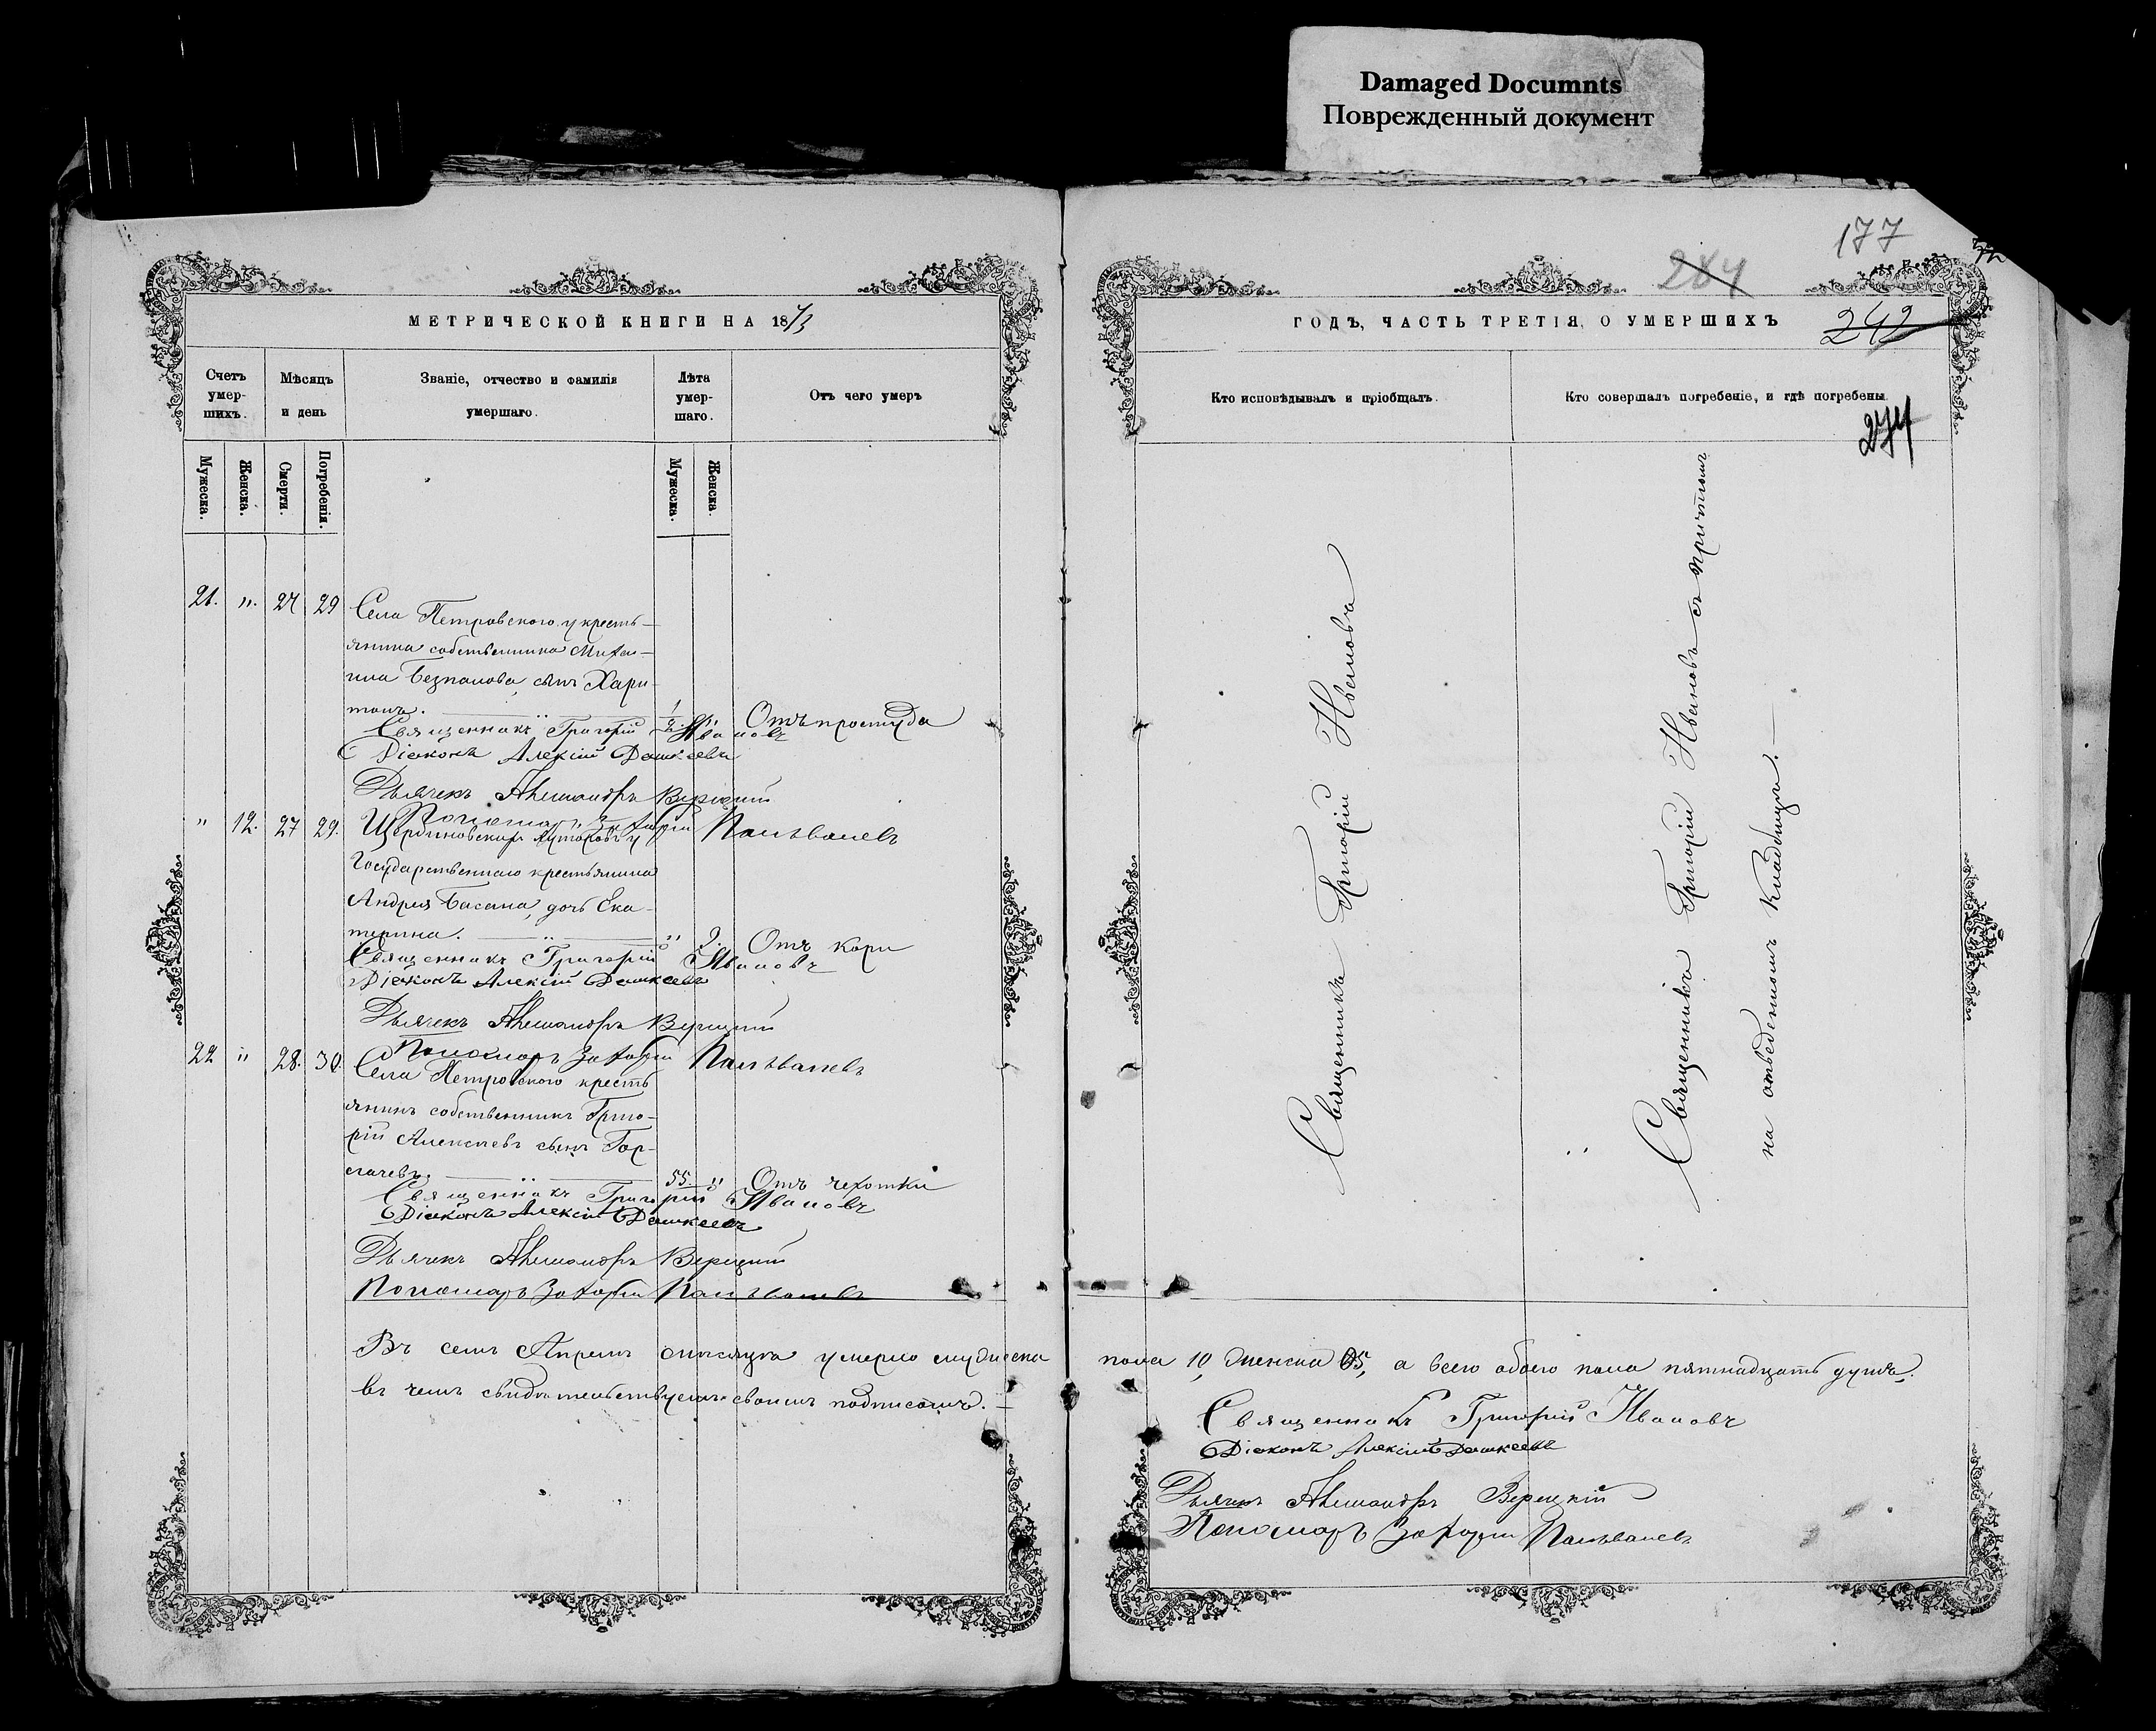 Damaged Documnts
Поврежденный документ
177
284
242
274
МЕТРИЧЕСКОЙ КНИГИ НА 1873
Счетъ умер-шихъ.
Мѣсяцъ и день
Званіе, отчество и фамилія умершаго.
Лѣта умер-шаго.
Отъ чего умеръ
Мужеска.
Женска.
Смерти.
Погребенія.
Мужеска.
Женска.
21. " 27 29 Села Петровскаго у кресть-
янина собственника Миха-
ила Безпалова, сынъ Хари-
тонъ. 1/2 " Отъ простуды
Священникъ Григорій Ивановъ
Діаконъ Алексій Дашкеевъ
Дьячекъ Александръ Верецкій
Пономарь Захарій
" 12. 27 29. Щербиновскихъ хуторовъ у
Государственнаго крестьянина
Андрея Басана, дочь Ека-
терина. " 2. Отъ кори
Священникъ Григорій Ивановъ
Діаконъ Алексій Дашкеевъ
Дьячекъ Александръ Верецкій
Пономарь Захарій
22 " 28. 30. Села Петровскаго кресть
янинъ собственникъ Григо-
рій Алексѣевъ сынъ Гор-
бачевъ. 55. " Отъ чахотки
Священникъ Григорій Ивановъ
Діаконъ Алексій Дашкеевъ
Дьячекъ Александръ Верецкій
Пономарь Захарій
Въ семъ Апрѣлѣ мѣсяцѣ умерло мужеска
въ чемъ свидѣтельствуемъ своимъ подписомъ.
ГОДЪ, ЧАСТЬ ТРЕТІЯ, О УМЕРШИХЪ
Кто исповѣдывалъ и пріобщалъ.
Кто совершалъ погребеніе, и гдѣ погребены.
Священникъ Григорій Ивановъ
Священникъ Григорій Ивановъ съ причтомъ
на отведенномъ кладбищѣ.
пола 10, женска 5, а всего обоего пола пятнадцать душъ.
Священникъ Григорій Ивановъ
Діаконъ Алексій Дашкеевъ
Дьячекъ Александръ Верецкій
Пономарь Захарій